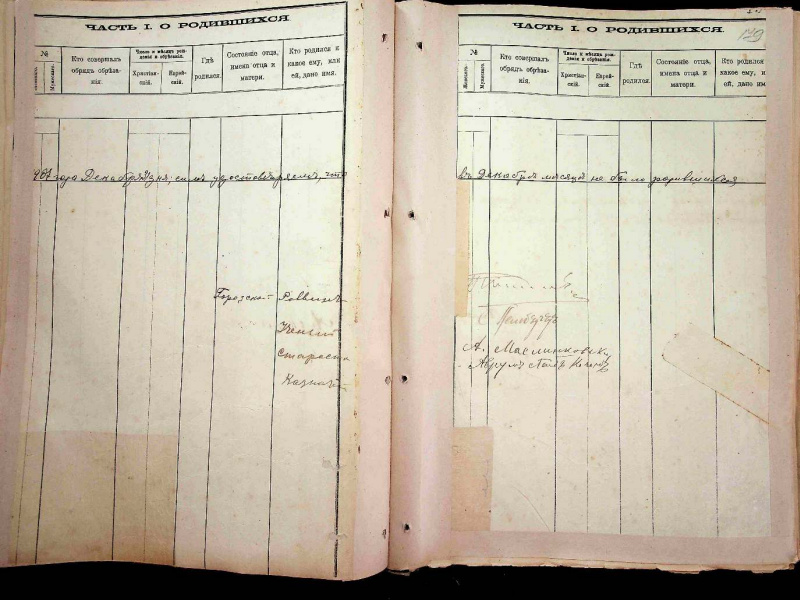 ЧАСТЬ I. О РОДИВШИХСЯ
№
Женскаго.
Мужескаго.
Кто совершалъ
обрядъ обрѣза-
нія.
Число и мѣсяцъ рож-
денія и обрѣзанія.
Христіан-
скій.
Еврей-
скій.
Гдѣ
родился.
Состояніе отца,
имена отца и
матери.
Кто родился и
какое ему, или
ей, дано имя.
года Декабря дня, симъ удостовѣряемъ, что
Городской Раввинъ
Ученый
Староста
Казначей
ЧАСТЬ I. О РОДИВШИХСЯ.
129
№
Женскаго.
Мужескаго.
Кто совершалъ
обрядъ обрѣза-
нія.
Число и мѣсяцъ рож-
денія и обрѣзанія.
Христіан-
скій.
Еврей-
скій.
Гдѣ
родился.
Состояніе отца,
имена отца и
матери.
Кто родился
какое ему, и
ей, дано им
въ Декабрѣ мѣсяцѣ не было родившихся
А.